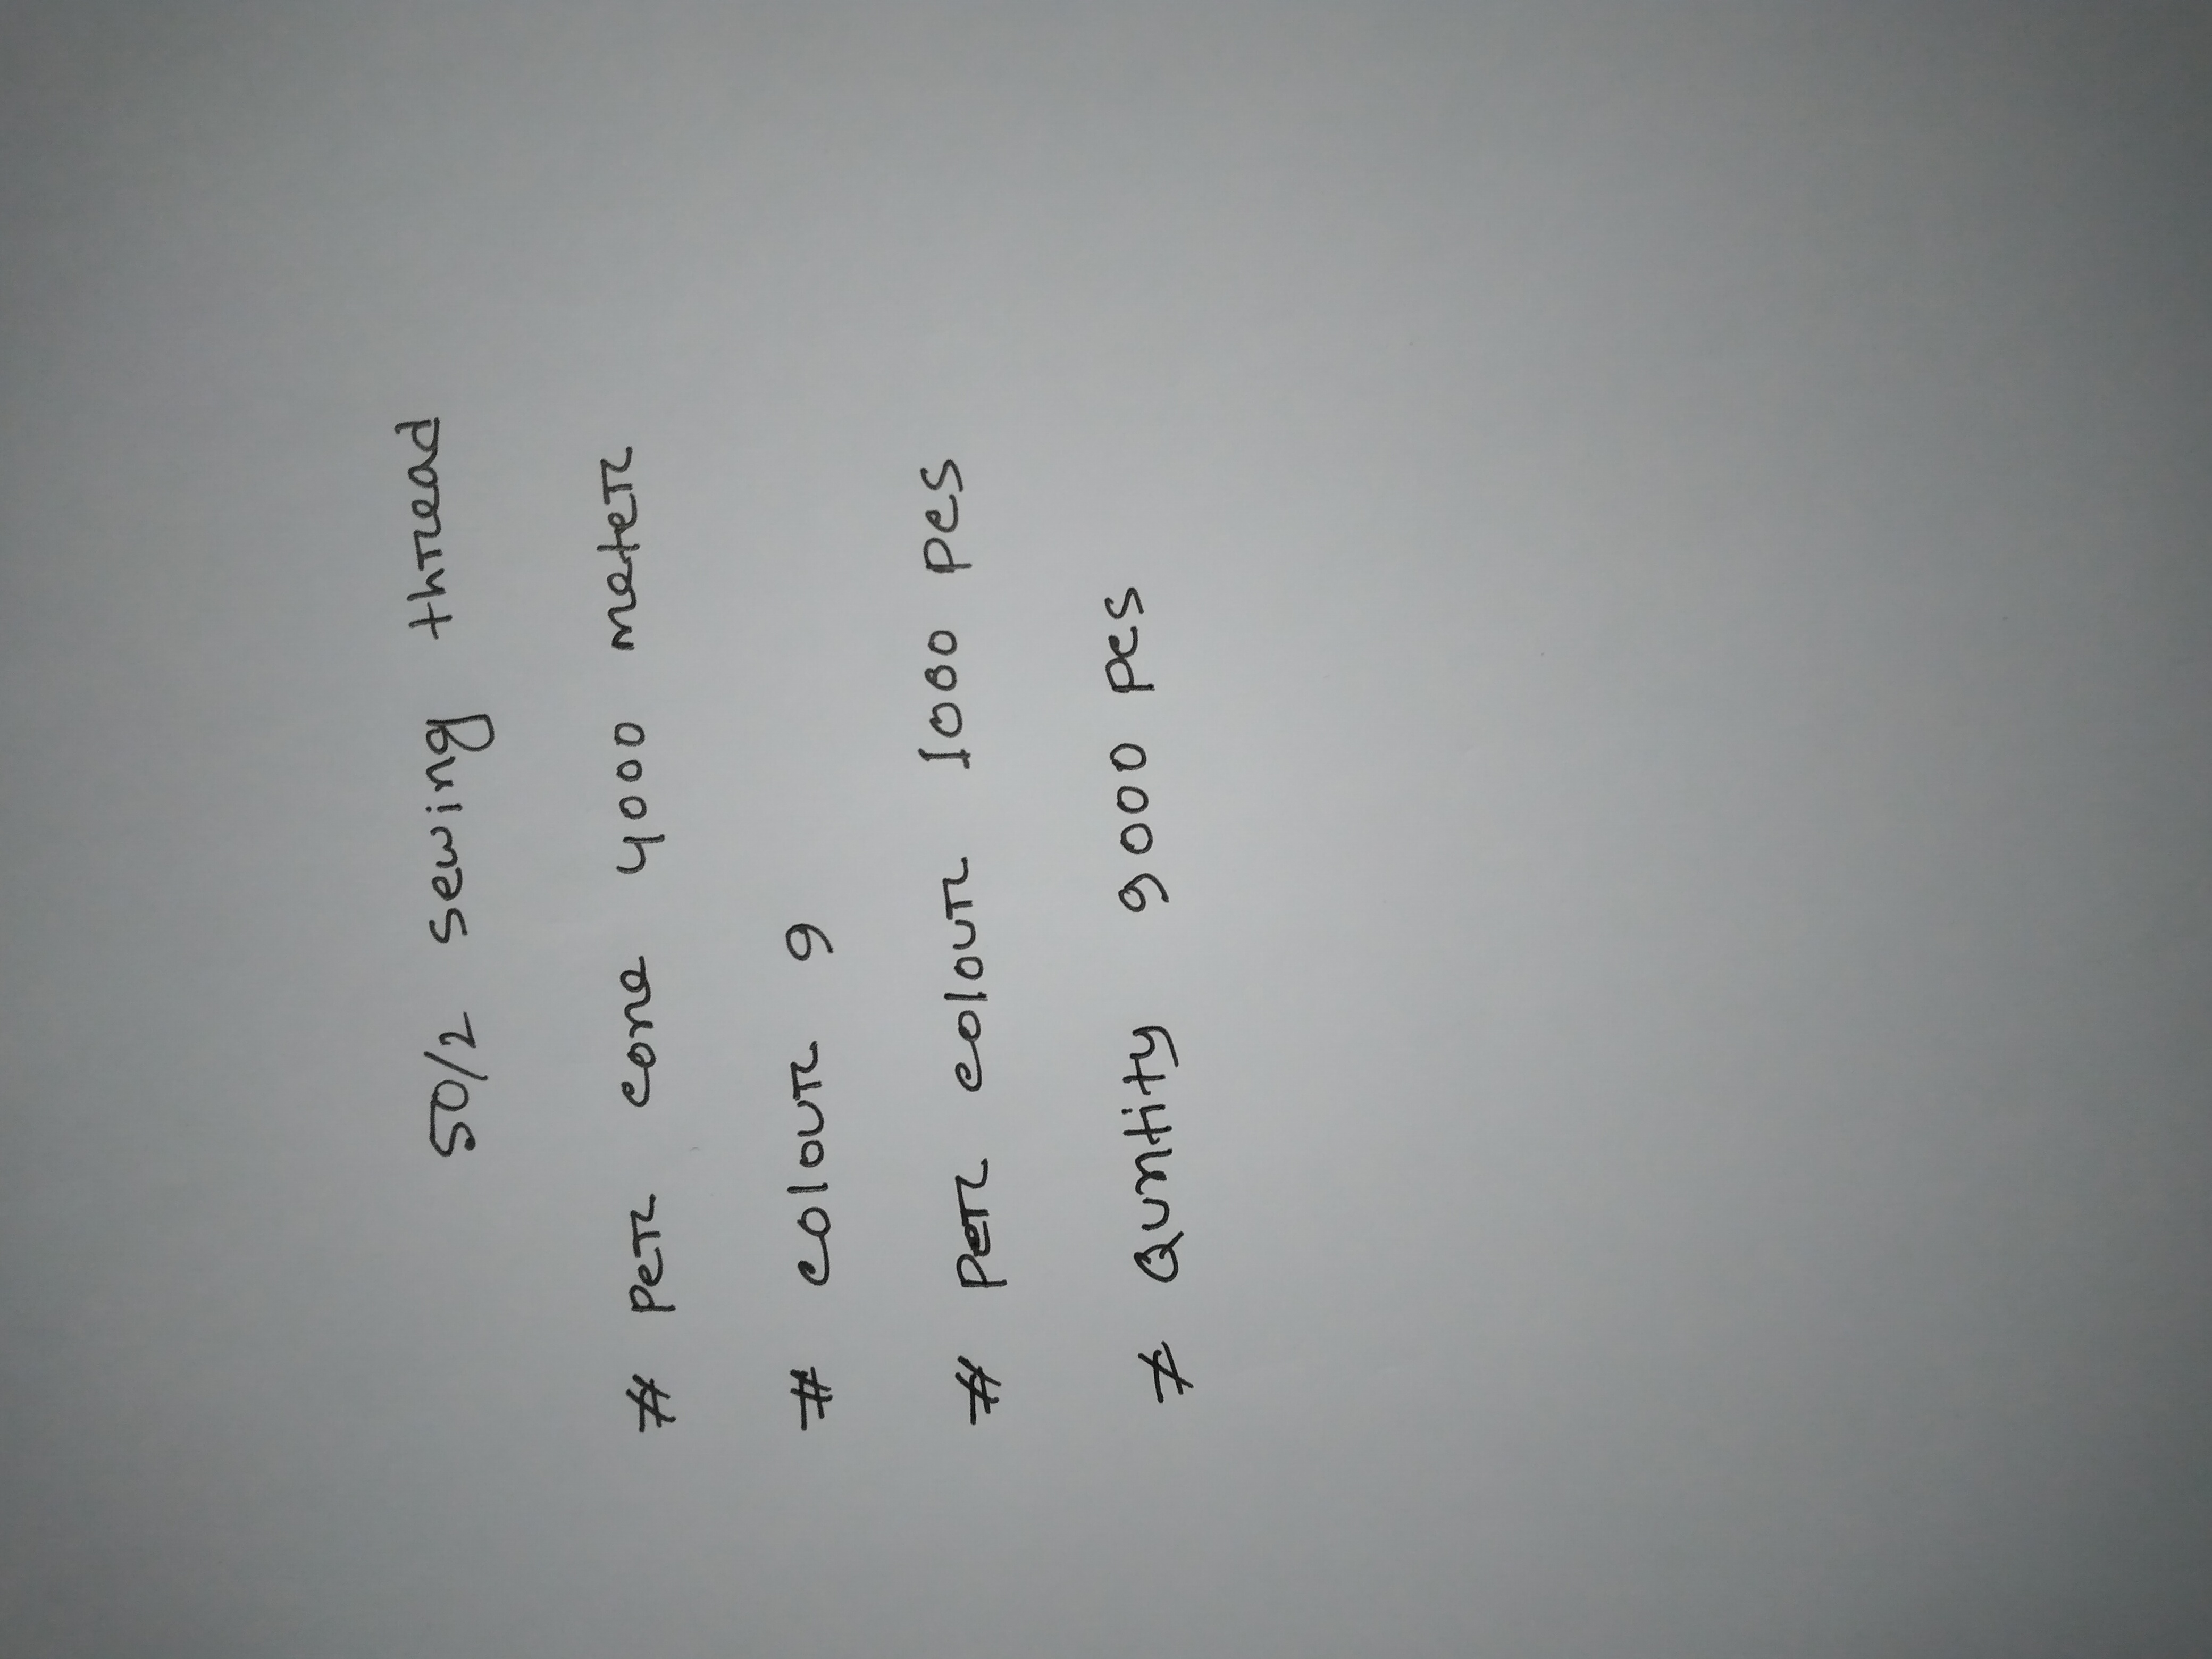 50/2 sewing thread
# Per cona 4000 mater
# colour 9
# Per colour 1000 pcs
# Quntity 9000 pcs